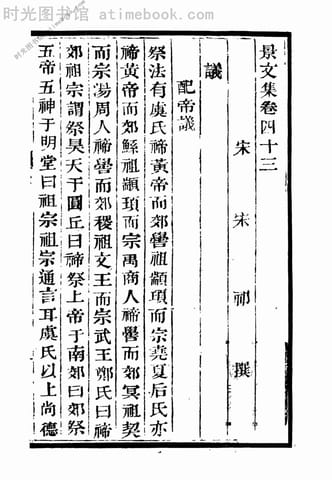 时光图书馆 atimebook.com
景文集卷四十三
宋 宋 祁 撰
議
配帝議
祭法有虞氏禘黃帝而郊嚳祖顓頊而宗堯夏后氏亦
禘黃帝而郊鯀祖顓頊而宗禹商人禘嚳而郊冥祖契
而宗湯周人禘嚳而郊稷祖文王而宗武王鄭氏曰禘
郊祖宗謂祭昊天于圜丘曰禘祭上帝于南郊曰郊祭
五帝五神于明堂曰祖宗祖宗通言耳虞氏以上尚德